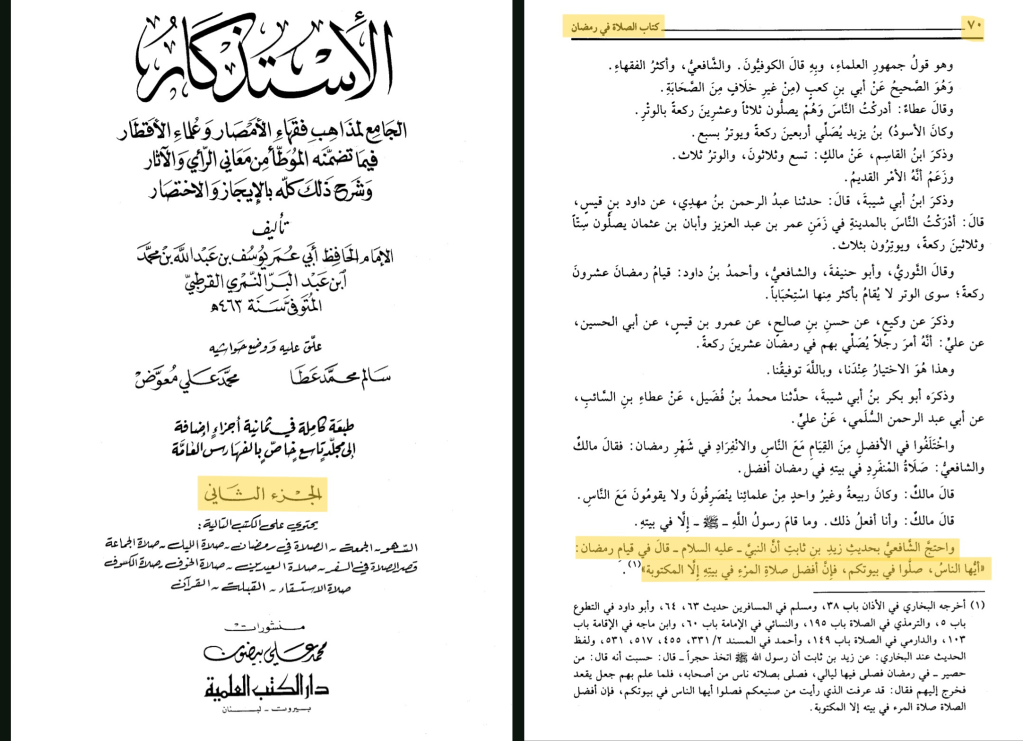 الاستذكار
الجامع لمذاهب فقهاء الأمصار وعلماء الأقطار
فيما تضمنه الموطأ من معاني الرأي والآثار
وشرح ذلك كله بالإيجاز والاختصار
تأليف
الإمام الحافظ أبي عمر يوسف بن عبد الله بن محمد
ابن عبد البر النمري القرطبي
المتوفى سنة ٤٦٣ هـ
علق عليه ووضع حواشيه
سالم محمد عطا محمد علي معوض
طبعة كاملة في ثمانية أجزاء إضافة
إلى مجلد تاسع خاص بالفهارس العامة
الجزء الثاني
يحتوي على الكتب التالية:
السهو - الجمعة - الصلاة في رمضان - صلاة الليل - صلاة الجماعة
قصر الصلاة في السفر - صلاة العيدين - صلاة الخوف - صلاة الكسوف
صلاة الاستسقاء - القبلة - القرآن
منشورات
محمد علي بيضون
دار الكتب العلمية
بيروت - لبنان
٧٠ كتاب الصلاة في رمضان
وهو قولُ جمهورِ العلماءِ، وبِهِ قالَ الكوفيُّونَ. والشَّافعيُّ، وأكثرُ الفقهاءِ.
وَهُوَ الصَّحيحُ عَنْ أبي بنِ كعبٍ (مِنْ غيرِ خلَافٍ مِنَ الصَّحَابَةِ.
وقالَ عطاءٌ: أدركْتُ النَّاسَ وَهُمْ يصلُّون ثلاثاً وعشرينَ ركعةً بالوتْرِ.
وكانَ الأسودُ) بنُ يزيد يُصَلِّي أربعينَ ركعةً ويوترُ بسبع.
وذكرَ ابنُ القاسِم، عَنْ مالكٍ: تسع وثلاثونَ، والوترُ ثلاث.
وزَعَمُ أنَّهُ الأمْر القديمُ.
وذكرَ ابنُ أبي شيبةَ، قالَ: حدثنا عبدُ الرحمن بنُ مهدي، عن داود بنِ قيسٍ،
قالَ: أدْرَكْتُ النَّاسَ بالمدينةِ في زَمَنِ عمر بن عبد العزيز وأبان بن عثمان يصلُّون ستًّا
وثلاثينَ ركعةً، ويوتِرُون بثلاث.
وقالَ الثَّوريُّ، وأبو حنيفةَ، والشافعيُّ، وأحمدُ بنُ داود: قيامُ رمضانَ عشرونَ
ركعة؛ سوى الوتر لا يُقامُ بأكثر مِنها اسْتِحْبَاباً.
وذكرَ عن وكيعٍ، عن حسنِ بنِ صالحٍ، عن عمرو بن قيسٍ، عن أبي الحسين،
عن عليٍّ: أنَّهُ أمرَ رجلاً يُصَلِّي بهم في رمضان عشرينَ ركعةً.
وهذا هُوَ الاختيارُ عِنْدَنا، وباللَّهَ توفيقُنا.
وذكرَه أبو بكر بنُ أبي شيبةَ، حدَّثنا محمدُ بنُ فُضَيل، عَنْ عطاءِ بنِ السَّائبِ،
عن أبي عبد الرحمن السُّلَمي، عَنْ عليٍّ.
واخْتَلَفُوا في الأفضلِ مِنَ القِيَامِ مَعَ النَّاسِ والانْفِرَادِ في شَهْرِ رمضان: فقالَ مالكٌ
والشافعيُّ: صَلَاةُ المْنفَرِدِ في بيتهِ في رمضان أفضل.
قالَ مالكٌ: وكانَ ربيعةُ وغيرُ واحدٍ مِنْ علمائِنا ينْصَرِفُونَ ولا يقومُونَ مَعَ النَّاسِ.
قالَ مالكٌ: وأنا أفعلُ ذلك. وما قامَ رسولُ اللَّهِ ـ ﷺ ـ إلَّا في بيتِهِ.
واحتجَّ الشَّافعيُّ بحديثِ زيدِ بنِ ثابتِ أنَّ النبيَّ ـ عليه السلام ـ قالَ في قيامِ رمضان:
«أيُّها الناسُ، صلُّوا في بيوتكم، فإنَّ أفضل صلاةِ المرْءِ في بيتِهِ إلَّا المكتوبة»(١).
(١) أخرجه البخاري في الأذان باب ٣٨، ومسلم في المسافرين حديث ٦٣، ٦٤، وأبو داود في التطوع
باب ٥، والترمذي في الصلاة باب ١٩٥، والنسائي في الإمامة باب ٦٠، وابن ماجه في الإقامة باب
١٠٣، والدارمي في الصلاة باب ١٤٩، وأحمد في المسند ٢/ ٣٣١، ٤٥٥، ٥١٧، ٥٣١، ولفظ
الحديث عند البخاري: عن زيد بن ثابت أن رسول الله ﷺ اتخذ حجراً ـ قال: حسبت أنه قال: من
حصير ـ في رمضان فصلى فيها ليالي، فصلى بصلاته ناس من أصحابه، فلما علم بهم جعل يقعد
فخرج إليهم فقال: قد عرفت الذي رأيت من صنيعكم فصلوا أيها الناس في بيوتكم، فإن أفضل
الصلاة صلاة المرء في بيته إلا المكتوبة.